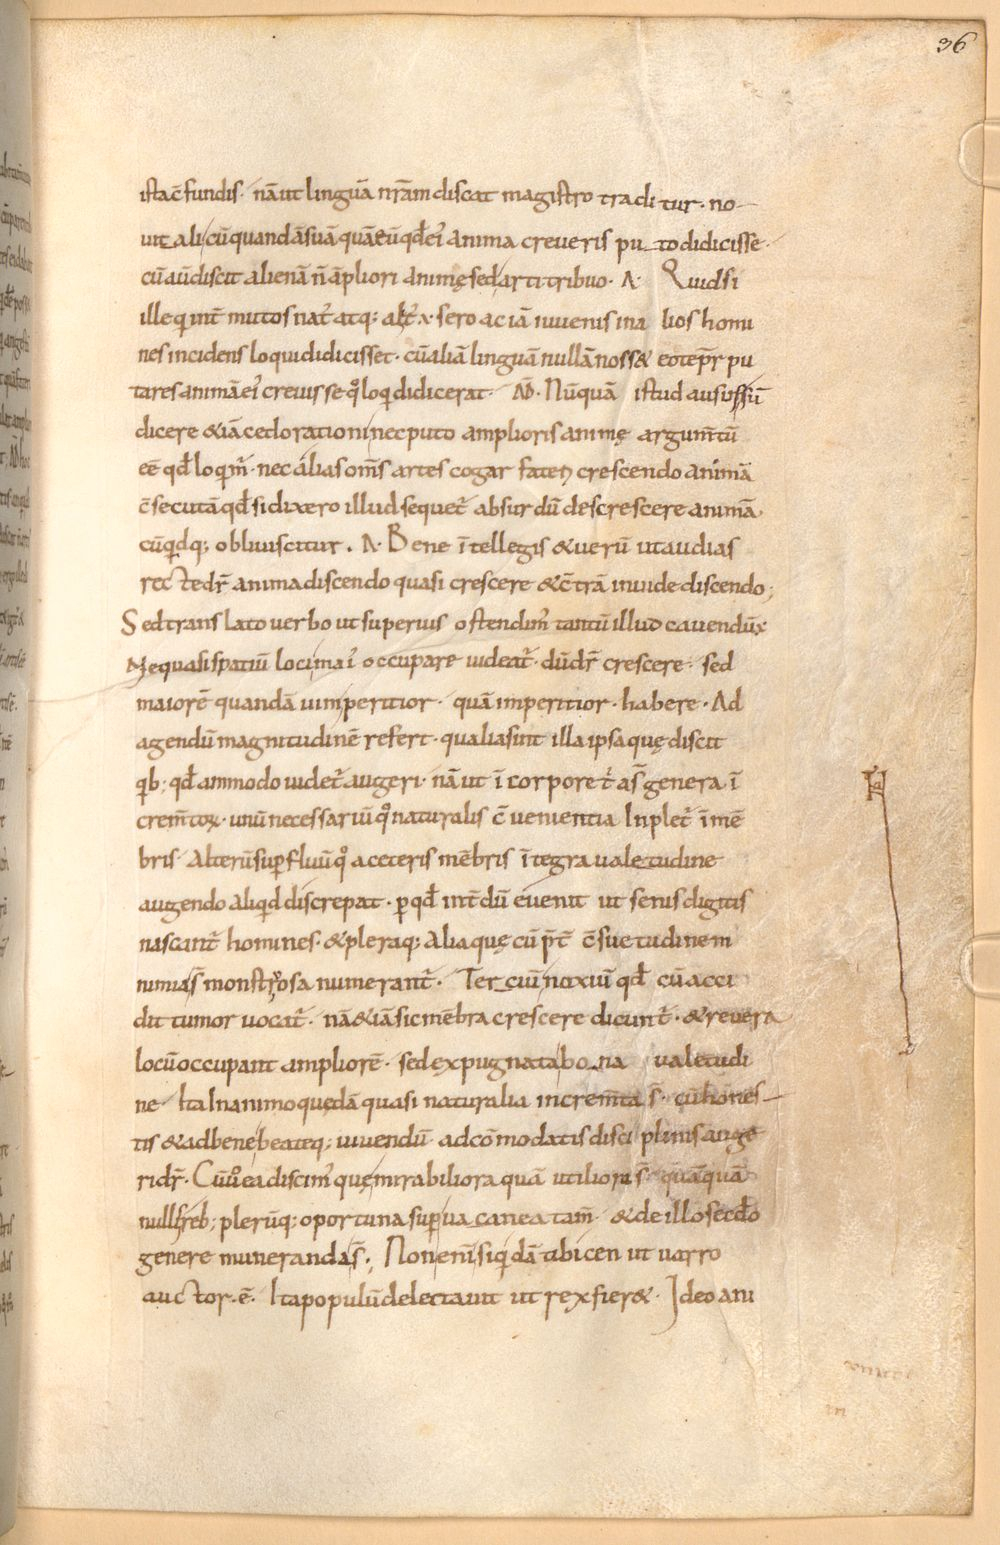 36
ista c̄fundis· nā ut linguā nr̄am discat magistro traditur· no
uit alicū quandā suā quā cū qd̄ ei' anima creueris puto didicisse·
cū aū discit alienā n̄ āpliori animę sed arti tribuo· A· Quid si
ille q int̄ mutos nat' atq; alt'x· sero ac iā iuuenis in alios homi
nes incidens loqui didicisset· cū aliā linguā nullā noss& eo tēpr̄ pu
tares animā ei' creuisse qͦ loqͥ didicerat· AD· Nūquā istud ausus sū
dicere &iā cedo rationi nec puto amplioris animę argum̄tū
eē qd̄ loqͥm̄· nec alias om̄s artes cogar fateri crescendo animā
c̄secutā qd̄ si dixero illud sequet' absurdū descrescere animā
cū qͥdq; obliuiscitur· A· Bene ītellegis & uerū ut audias
recte dr̄ anima discendo quasi crescere & c̄trā inuide discendo;
Sed translato uerbo ut superius ostendim' tantū illud cauendū x
Ne quasi spatiū loci mai' occupare uideat'· dū dr̄ crescere· sed
maiorē quandā uim peritior· quā imperitior· habere· Ad
agendū magnitudinē refert· qualia sint illa ipsa quę discit
qͥb; qd̄ ammodo uidet' augeri· nā ut ī corpore t' as̄ genera ī
crem̄tox· unū necessariū qͦ naturalis c̄uenientia Inplet' ī mē
bris· Alterū suꝑfluū qͦ a ceteris mēbris ītegra ualetudine
augendo aliqͥd discrepat· ꝑ qd̄ int̄dū euenit ut senis digitis
nascant' homines· & pleraq; alia quę cū p̄t' c̄suetudinem
nimia s̄ monstrosa numerant'· Tercium noxiū qd̄ cū acci
dit tumor uocat'· nā &iā sic mēbra crescere dicunt'· & reuera
locū occupant ampliorē· sed expugnata bona ualetudi
ne· Ita In animo quędā quasi naturalia increm̄ta s̄· cū hones
tis & ad bene beateq; uiuendū adcōmodatis disciplinis auge
ri dr̄· Cū ūͦ ea discim' quę mirabiliora quā utiliora s̄ quāquā
null' reb; plerūq; oportuna suꝑuacanea tam̄· & de illo sec̄do
genere muneranda s̄· Non enī si qͥdā tibicen ut uarro
auctor· ē· Ita populū delectauit ut rex fier&· Ideo ani